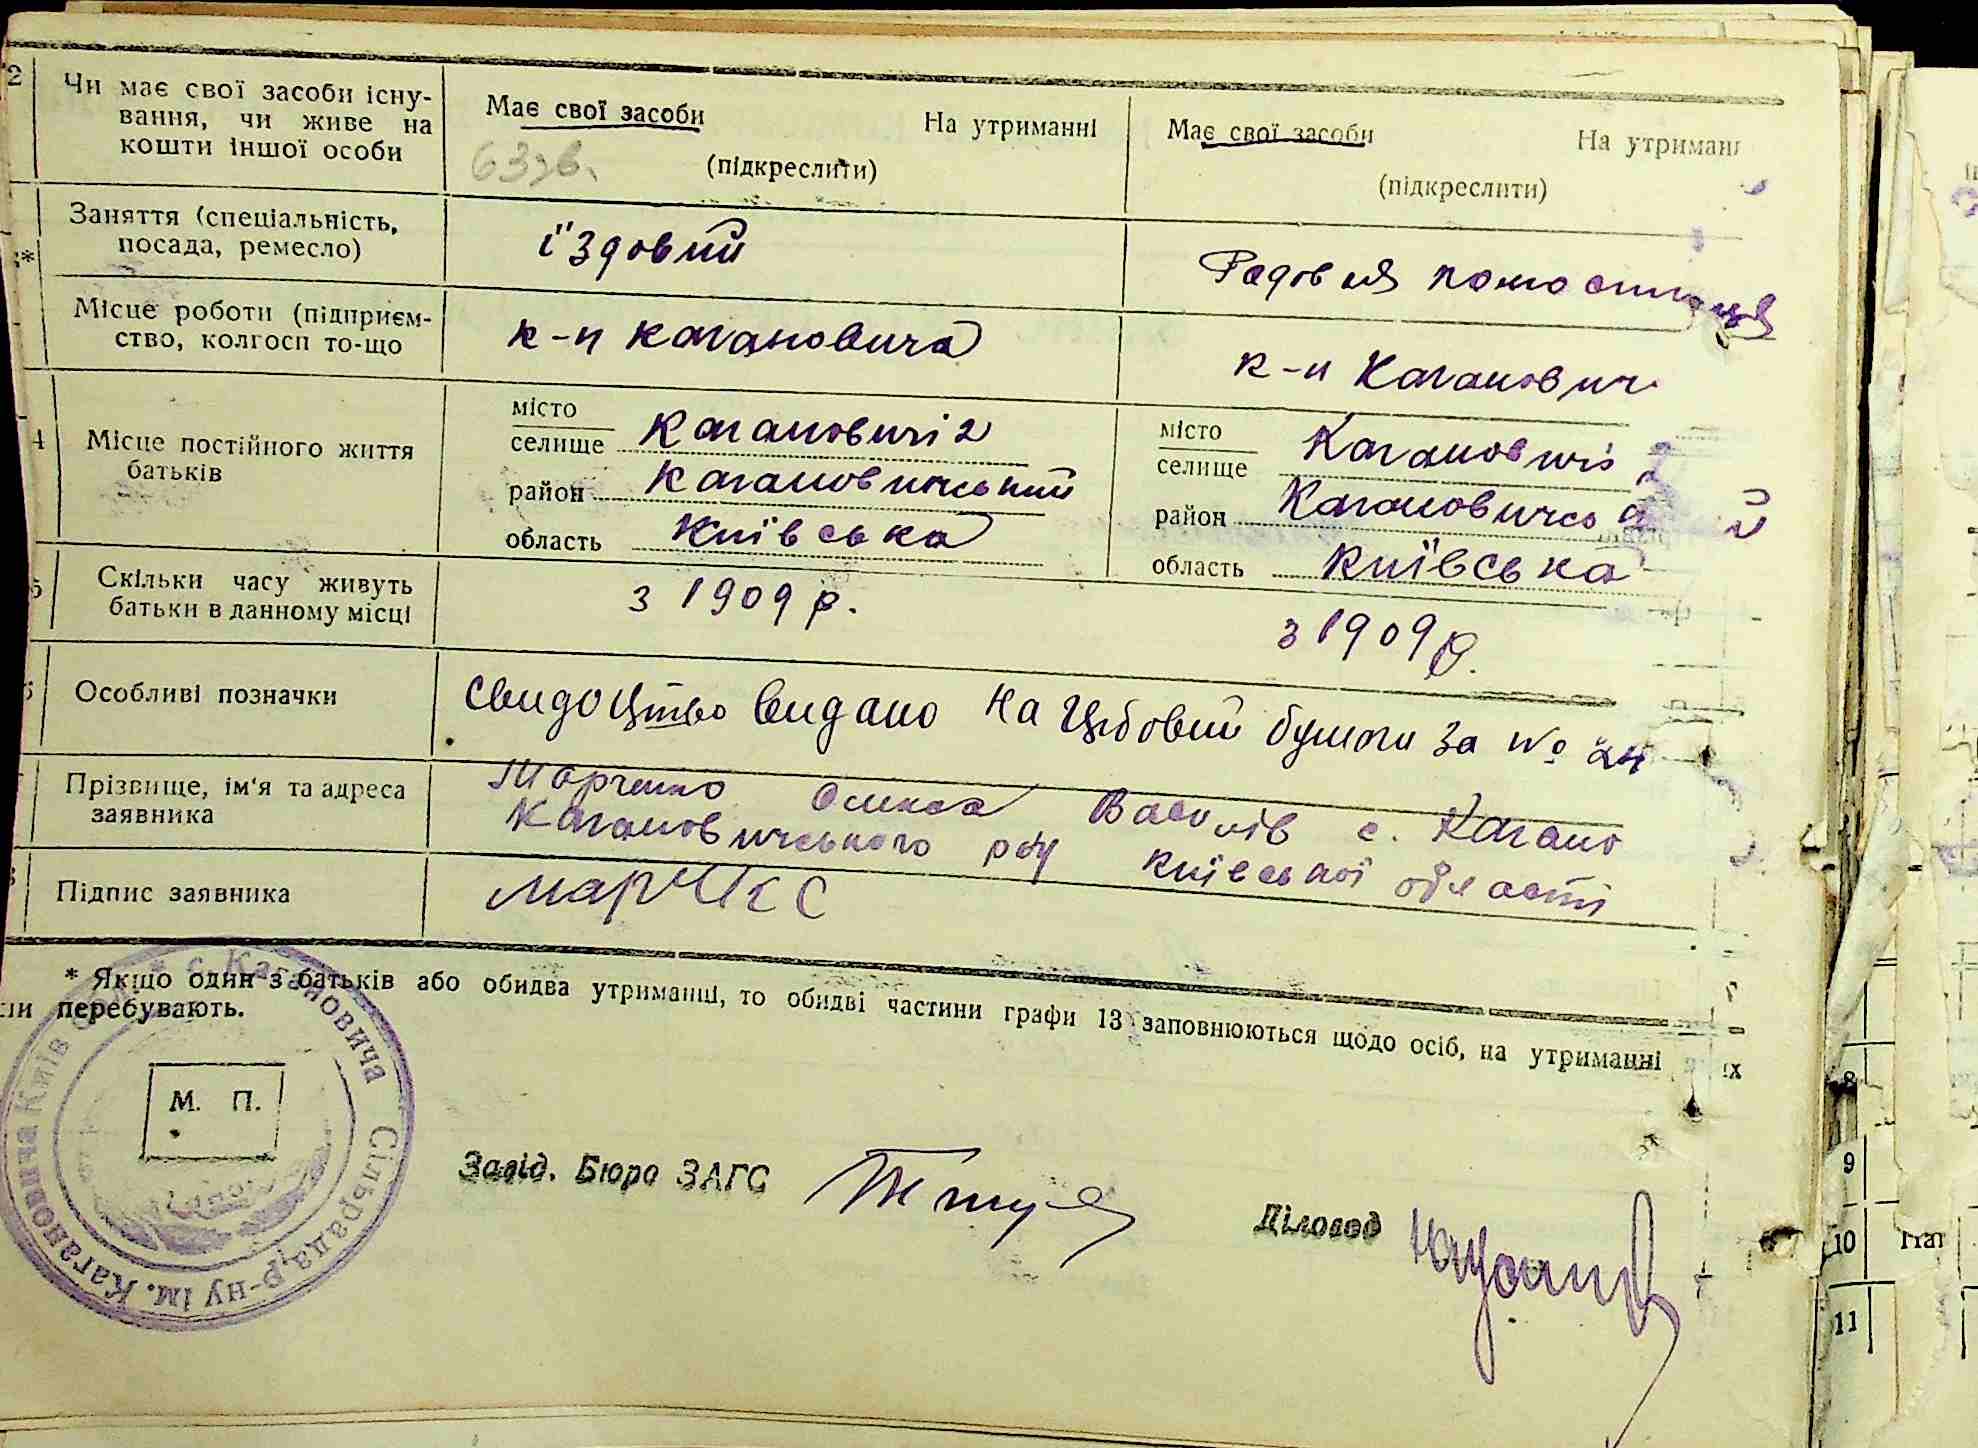 2 Чи має свої засоби існу-
вання, чи живе на
кошти іншої особи
Має свої засоби На утриманні
(підкреслити)
63 зв.
Має свої засоби На утриман
(підкреслити)
Заняття (спеціальність,
посада, ремесло)
їздовий
Рядовая
Місце роботи (підприєм-
ство, колгосп то-що
к-п Кагановича
к-п Каганович
4 Місце постійного життя
батьків
місто
селище Кагановичі 2
район Кагановичський
область Київська
місто
селище Кагановичі 2
район Кагановичсь й
область Київська
5 Скільки часу живуть
батьки в данному місці
з 1909 р.
з 1909 р.
Особливі позначки
Свидоцтво видано на Цібовий бумаги за № 24
Прізвище, ім'я та адреса
заявника
Марченко Олекса Василів с. Кагано
Кагановичського р-ну Київської області
Підпис заявника
* Якщо один з батьків або обидва утриманці, то обидві частини графи 13 заповнюються щодо осіб, на утриманні их
ни перебувають.
с. Кагановича Сільрада, р-ну ім. Кагановича Київ
М. П.
Завід. Бюро ЗАГС
Діловод
8
9
10
11